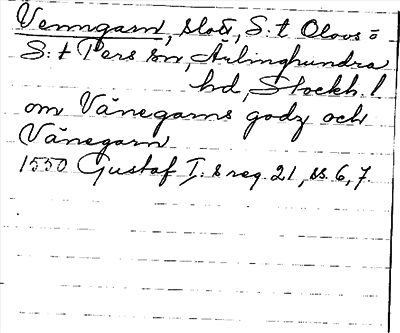 Venngarn, slott, S:t Olovs o
S:t Pers sn, Ärlinghundra
hd, Stockh. l
om Vänegarns godz och
Vänegarn
1550 Gustaf I:s reg. 21, ss. 6, 7.